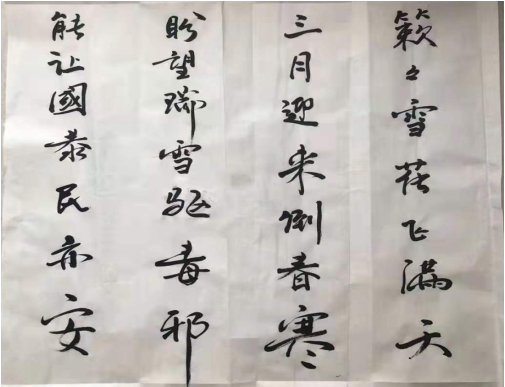 簌々雪花飞满天
三月迎来倒春寒
盼望瑞雪驱毒邪
能让國泰民亦安